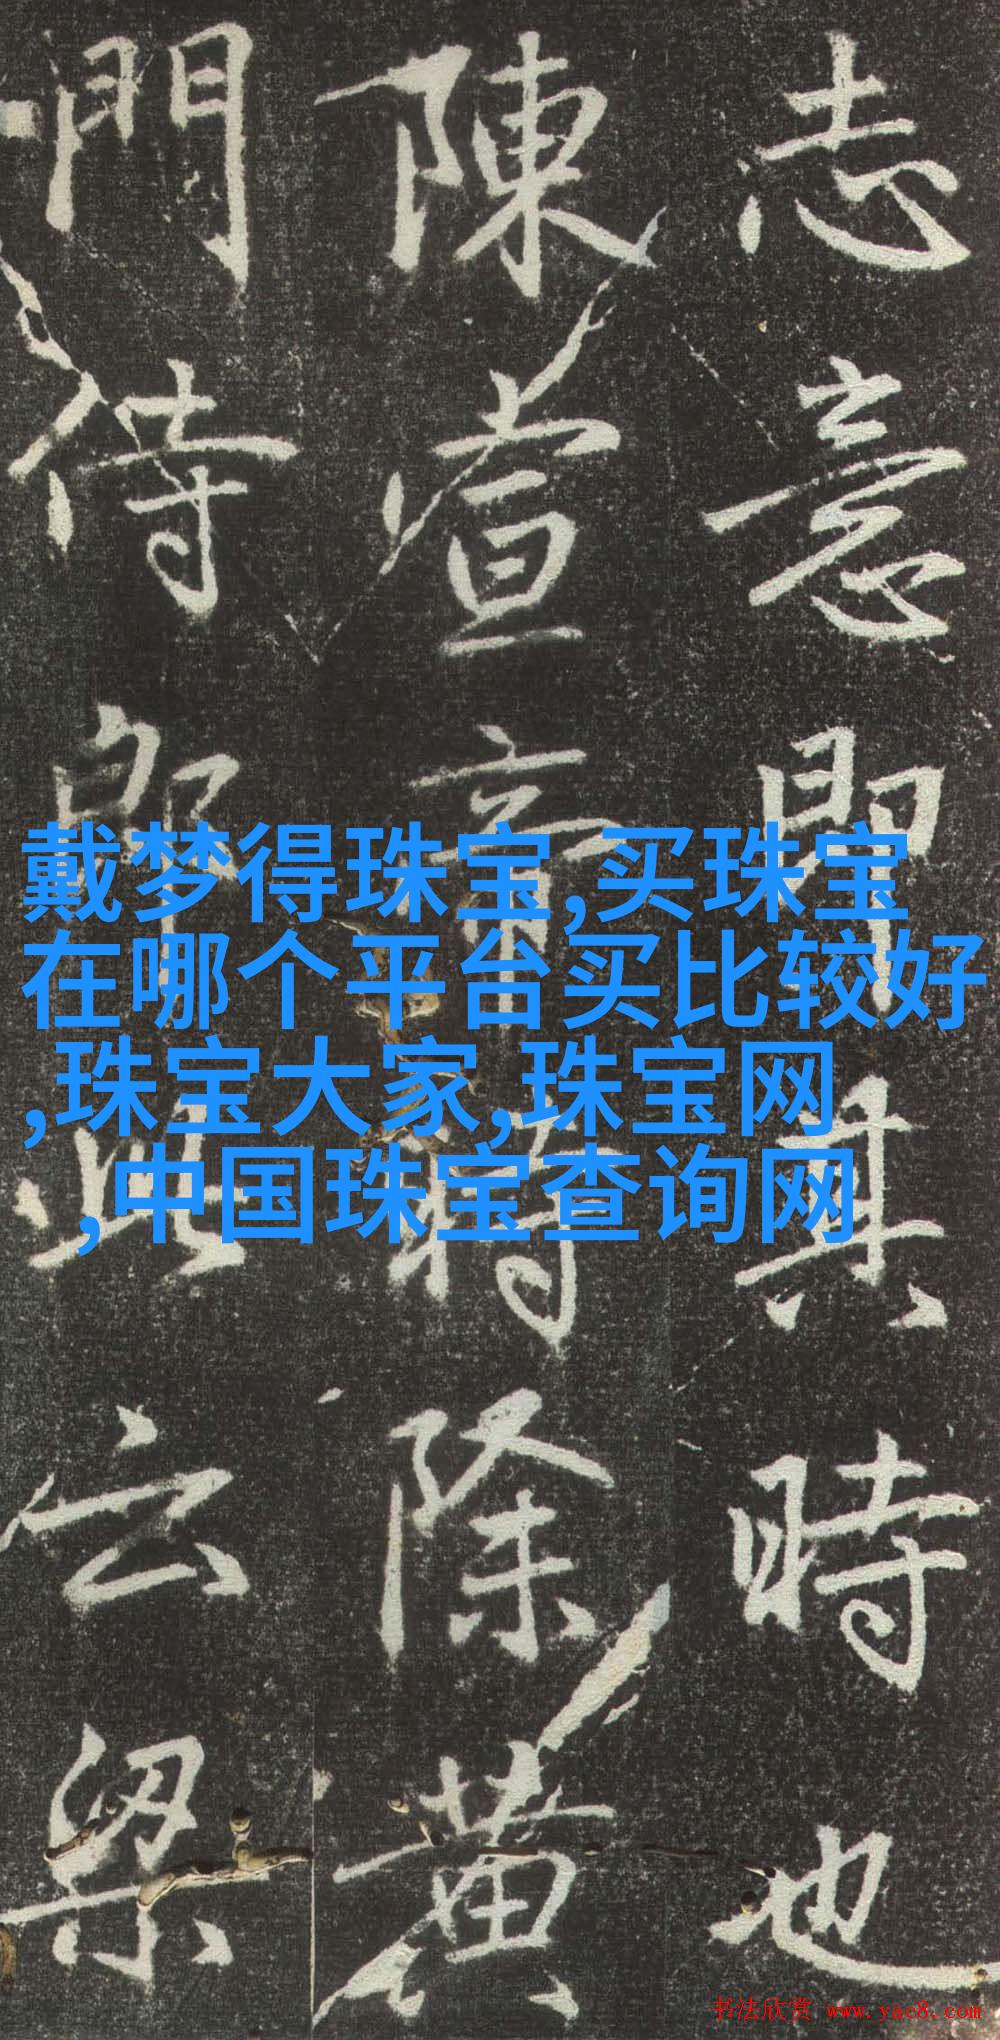 志意即其時也
陳宣帝時除黄
門侍郎此云梁
戴梦得珠宝,买珠宝
在哪个平台买比较好
,珠宝大家,珠宝网
,中国珠宝查询网
书法欣赏 www.yac8.com